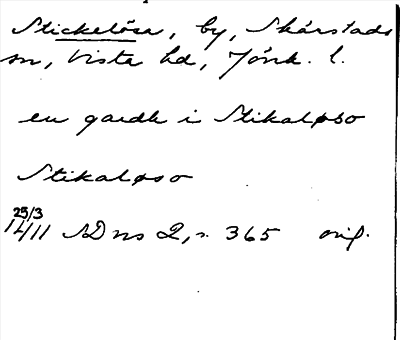 Stickelösa, by, Skärstads
sn, Vista hd, Jönk. l.
en gardh i Stikaløso
Stikaløso
25/3
1411 SD ns 2, s. 365 orig.